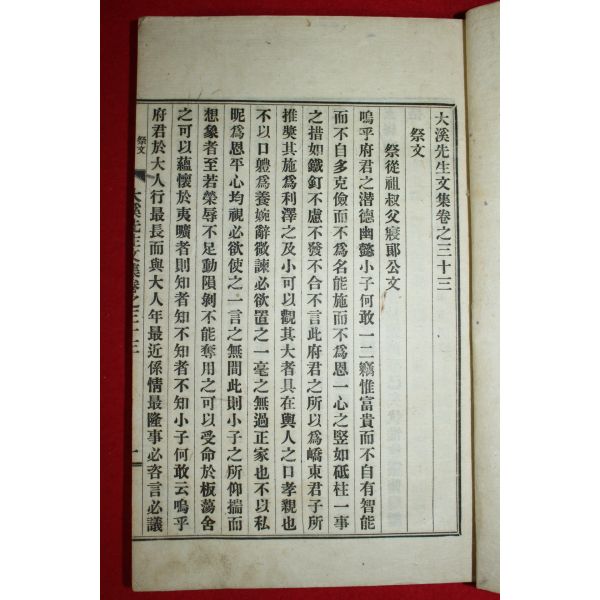 大溪先生文集卷之三十三
祭文
祭從祖叔父寢郞公文
嗚乎府君之潛德幽懿小子何敢一二竊惟富貴而不自有智能
而不自多克儉而不爲名能施而不爲恩一心之竪如砥柱一事
之措如鐵釘不慮不發不合不言此府君之所以爲嶠東君子所
推奬其施爲利澤之及小可以觀其大者具在輿人之口孝親也
不以口體爲養婉辭微諫必欲置之一毫之無過正家也不以私
昵爲恩平心均視必欲使之一言之無間此則小子之所仰揣而
想象者至若榮辱不足動隕剝不能奪用之可以受命於板蕩舍
之可以蘊懷於夷曠者則知者知不知者不知小子何敢云嗚乎
府君於大人行最長而與大人年最近係情最隆事必咨言必議
祭文
大溪先生文集卷之三十三
一